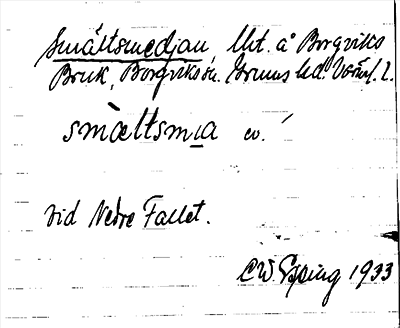 Smältsmedjan, lht. å Borgviks
Bruk, Borgviks sn. Grums hd. Värml. l.
smältsmia ev.
vid Nedre Fallet.
CW Esping 1933